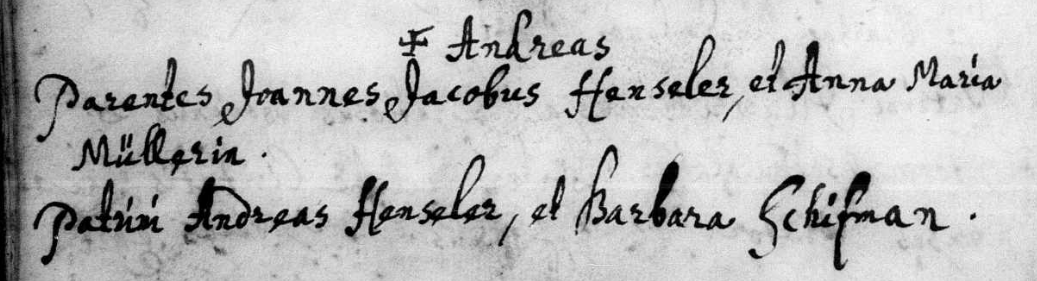 ✝ Andreas
Parentes Joannes Jacobus Henseler, et Anna Maria
Müllerin.
Patrini Andreas Henseler, et Barbara Schifman.